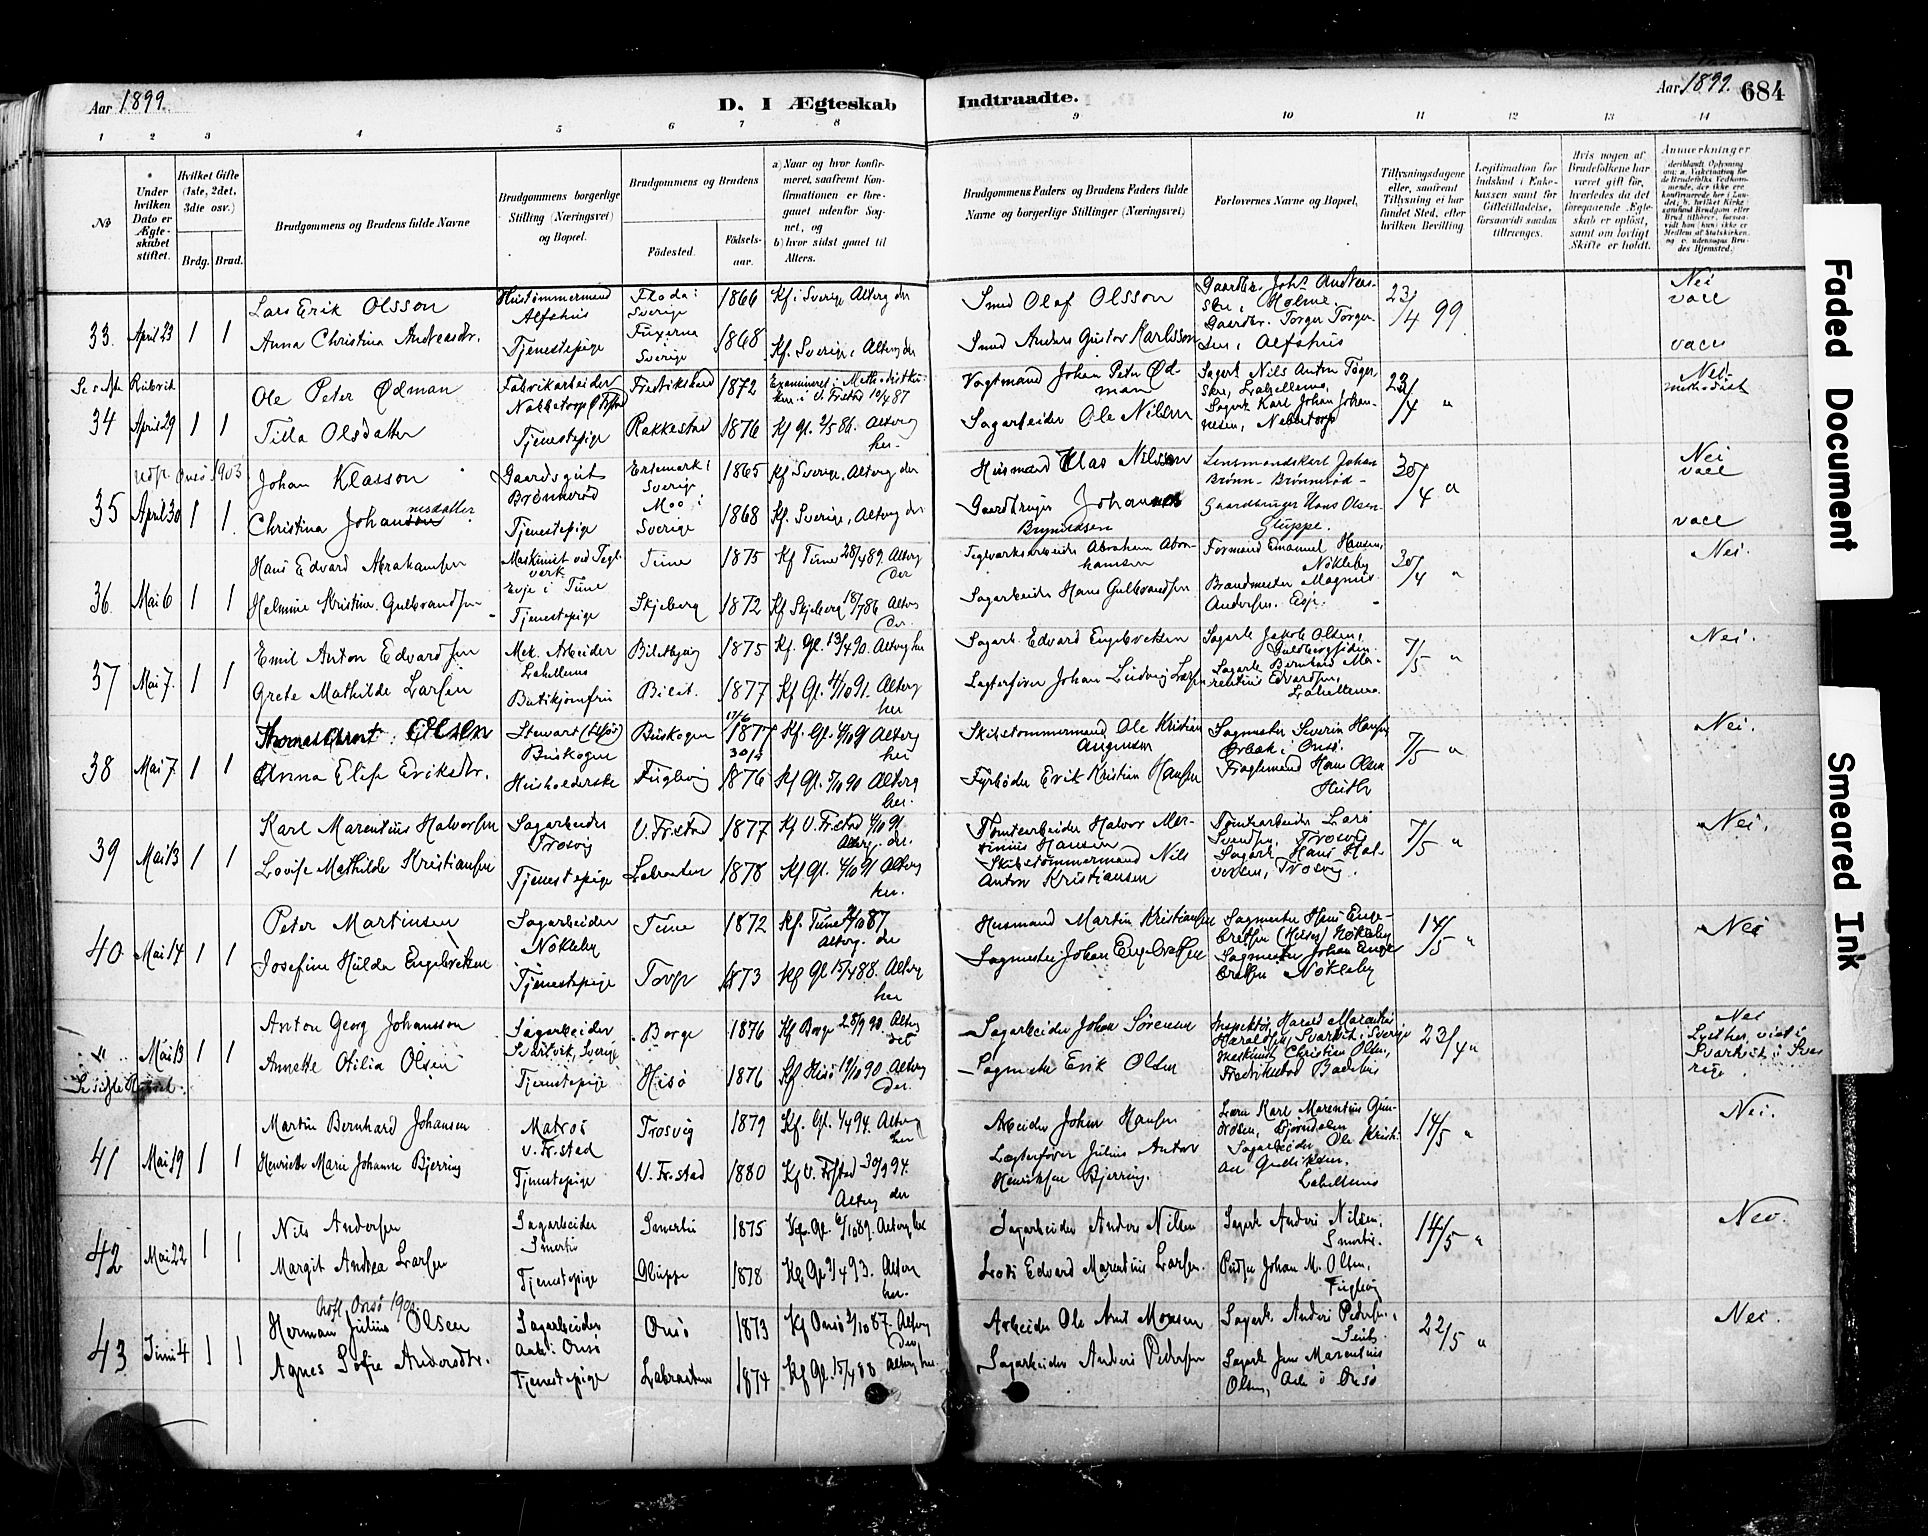 Aar 1899.
D. I Ægteskab
Indtraadte.
Aar 1899. 684
1 2 3 4 5 6 7 8 9 10 11 12 13 14
No
Under hvilken Dato er Ægteskabet stiftet.
Hvilket Gifte (1ste, 2det, 3die osv.)
Brdg. Brud.
Brudgommens og Brudens fulde Navne
Brudgommens borgerlige Stilling (Næringsvei) og Bopæl.
Brudgommens og Brudens
Födested.
Födselsaar.
a) Naar og hvor konfirmeret, saafremt Konfirmationen er foregaaet udenfor Sognet, og
b) hvor sidst gaaet til Alters.
Brudgommens Faders og Brudens Faders fulde Navne og borgerlige Stillinger (Næringsvei)
Forlovernes Navne og Bopæl.
Tillysningsdagene eller, saafremt Tillysning ei har fundet Sted, efter hvilken Bevilling
Legitimation for Indskud i Enkekassen samt for Giftetilladelse, forsaavidt saadan tiltrænges.
Hvis nogen af Brudefolkene har været gift før, hvorledes da det foregaaende Ægteskab er oplöst, samt om lovligt Skifte er holdt.
Anmærkninger
33. April 23 1 1
Lars Erik Olsson
Hustømmermand Alfshus
Floda i Sverige 1866
Kf. i Sverige Alterg der
Smed Olaf Olsson
Gaardbr. Johs Andreassen, Holme.
23/4 99
Nei vacc
Anna Christina Andreasdtr.
Tjenestepige
Sverige 1868
Kf. Sverige, Alterg der
Smed Anders Gustav Karlsson
Gaardbr. Torger Torgersen, Alfshus
vacc
34 April 29 1 1
Ole Peter Ødman
Fabrikarbeider
Fredrikstad 1872
Vagtmand Johan Peter Ødman
Sagarb Nils Anton
23/4 "
Nei. methodist
Tilla Olsdatter
Tjenestepige
Rakkestad 1876
Kf Gl. 2/5 86. Alterg her.
Sagarbeider Ole Nilsen
Sagarb Karl Johan Johannesen,
Udfl. Onsö 1903
35 April 30 1 1
Johan Klasson
Gaardsgut Brønnerød
Sverige 1865
Kf Sverige, Alterg der
Husmand Klas Nilsson
Lensmandskarl Johan Brönn- Brönnerød
30/4 "
Nei vacc
Christina Johannesdatter
Tjenestepige
Moo i Sverige 1868
Kf. Sverige, Alterg der
Gaardbruger Johannes Brynildsen
Gaardbruger Hans Olsen Gluppe.
vacc
36. Mai 6 1 1
Hans Edvard Abrahamsen
Maskinist ved Teglverk Evje i Tune
Tune 1875
Kf Tune 28/4 89. Alterg der
Teglværksarbeider Abraham Abrahamsen
Formand Emanuel Hansen, Nökleby
30/4 "
Nei.
Helmine Kristine Gulbrandsen
Tjenestepige
Skjeberg 1872
Kf Skjeberg 18/7 86 Alterg der.
Sagarbeider Hans Gulbrandsen
Brandmester Magnus Andersen. Evje.
37 Mai 7. 1 1
Emil Anton Edvardsen
Mek. Arbeider Lahellens
1875
Kf. Gl. 13/4 90. Alterg her
Sagarb. Edvard Engebretsen
Sagarb Jakob Olsen,
7/5 "
Nei.
Grete Mathilde Larsen
Butikjomfru
Bilit. 1877
Kf Gl. 4/10 91. Alterg her
Lagterfører Johan Ludvig Larsen
Sagarb Bernhard Marentius Edvardsen, Lahellens
38 Mai 7. 1 1
Thomas Olsen
Stewart Buskogen
Buskogen 17/6 1877
Kf. Gl. 4/10 91 Alterg her
Skibstømmermand Ole Kristian Augensen
Sagmester Severin Hansen Ørbæk i Onsø.
7/5 "
Nei.
Anna Elise Eriksdtr.
Husholderske
Fuglevig 1876
Kf Gl. 5/10 90 Alterg her.
Fyrbøder Erik Kristian Hansen
Hans Olsen
39 Mai 13 1 1
Karl Marentius Halvorsen
Sagarbeider Trosvig
V. Fr.stad 1877
Kf V. Fr.stad 4/10 91. Alterg. der.
Tömtearbeider Halvor Hansen
Tömtearbeider Lars Svendsen, Trosvig
7/5 "
Nei.
Lovise Mathilde Kristiansen
Tjenestepige
Labraaten 1878
Kf Gl. 4/10 91 Alterg her.
Skibstømmermand Nils Anton Kristiansen
Sagarb Hans Halvorsen, Trosvig.
40 Mai 14 1 1
Peter Martinsen
Sagarbeider Nökleby
Tune 1872
Kf. Tune 2/10 87 Alterg. der
Husmand Martin Kristiansen
Sagmester Hans Engebretsen Nökleby
14/5 "
Nei
Josefine Hulda Engebretsen
Tjenestepige
Torp 1873
Kf Gl 15/4 88. Alterg her
Sagmester Johan Engebretsen
Sagmester Johan Engebretsen Nökleby
" Mai 13 1 1
Anton Georg Johansson
Sagarbeider Svartvik, Sverige
Borge 1876
Kf Borge 28/9 90. Alterg det
Sagarbeider Johan Sörensen
Inspektör Harald Haraldsen, Svartvik, Sverige
23/4 "
Nei Svartvik i Sverige.
Annette Otilia Olsen
Tjenestepige
Hisö 1876
Kf Hisö 19/10 90. Alterg der.
Sagmester Erik Olsen
Maskinist Christian Olsen, Fredrikstad
41 Mai 19 1 1
Martin Bernhard Johansen
Matros V. Fr.stad
Trosvig 1879
Kf. Gl. 1/4 94. Alterg her
Arbeider Johan Hansen
Karl Marentius
14/5 "
Nei.
Henriette Marie Johanne Bjerring
Tjenestepige
V. Fr.stad 1880
Kf V. Frstad 30/9 94. Alterg der
Lagterfører Julius Anton Henriksen Bjerring.
Sagarbeider Ole Kristian Gulliksen, Lahellens
42 Mai 22 1 1
Nils Andersen
Sagarbeider Smertu
Smertu 1875
Kf. Gl. 6/10 89. Alterg her
Sagarbeider Anders Nilsen
Sagarb Anders Nilsen, Smertu.
14/5 "
Nei.
Margit Andrea Larsen
Tjenestepige
Gluppe 1878
Kf Gl 3/4 93. Alterg her.
Lods Edvard Marentius Larsen.
Johan M. Olsen, Fuglevig
Udfl. Onsö 190
43 Juni 4 1 1
Herman Julius Olsen
Sagarbeider Aale i Onsö
Onsö 1873
Kf Onsö 2/10 87. Alterg der
Arbeider Ole Arnt Monsen
Sagarb Anders Pedersen,
22/5 "
Nei.
Agnes Sofie Andersdtr.
Tjenestepige
Labraaten 1874
Kf Gl. 15/4 88 Alterg her.
Sagarbeider Anders Pedersen
Sagarb Jens Marentius Olsen, Aale i Onsö
Faded Document
Smeared Ink